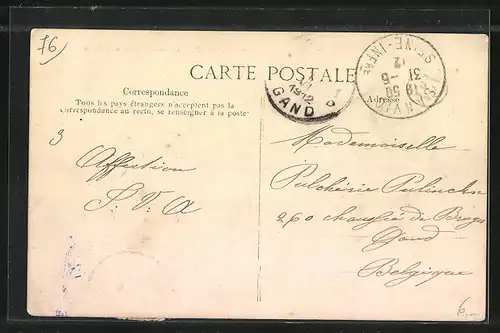 76
CARTE POSTALE
Correspondance
Tous les pays étrangers n'acceptent pas la
correspondance au recto, se renseigner à la poste
Adresse
1912
GAND
SEINE-INFRE
31 -5
12
3
Affection
S.V.A
Mademoiselle
Pulchérie
260 chaussée de Bruges
Gand
Belgique
6,-